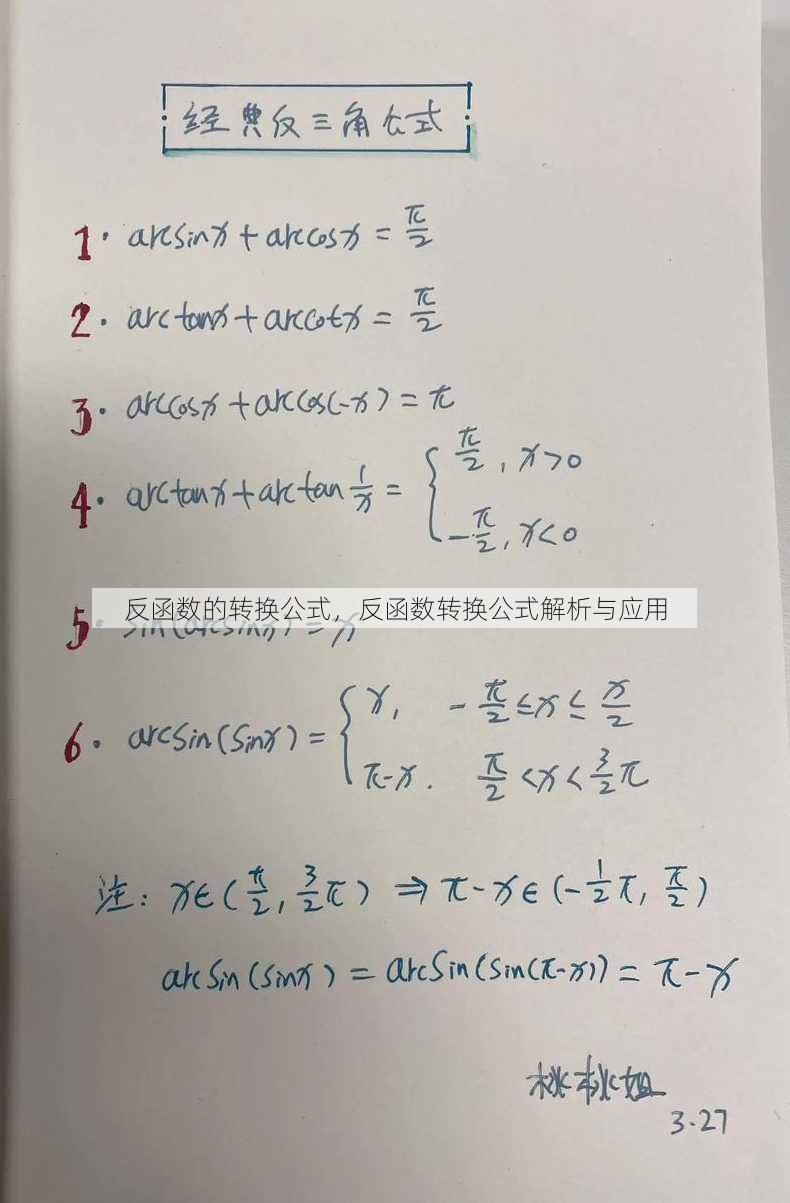 经典反三角公式
1. arcsinx + arccosx = π/2
2. arctanx + arccotx = π/2
3. arccosx + arccos(-x) = π
4. arctanx + arctan 1/x = { π/2, x>0
-π/2, x<0
反函数的转换公式，反函数转换公式解析与应用
5. sin(arcsinx) = x
6. arcsin(sinx) = { x, -π/2 ≤ x ≤ π/2
π-x. π/2 < x < 3/2 π
注: x∈(π/2, 3/2 π) ⇒ π-x∈(-1/2 π, π/2)
arcsin(sinx) = arcsin(sin(π-x)) = π-x
桃桃姐
3.27